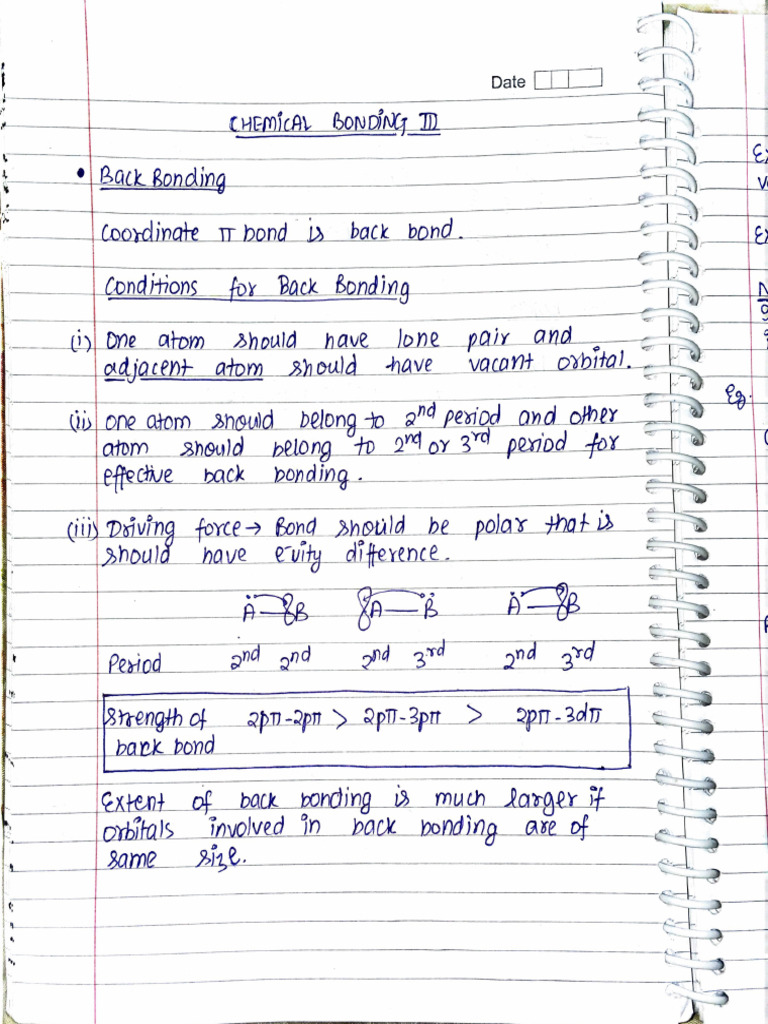 Date
CHEMICAL BONDING III
• Back Bonding
Coordinate π bond is back bond.
Conditions for Back Bonding
(i) One atom should have lone pair and
adjacent atom should have vacant orbital.
(ii) One atom should belong to 2nd period and other
atom should belong to 2nd or 3rd period for
effective back bonding.
(iii) Driving force → Bond should be polar that is
should have e⁻vity difference.
A — B A — B A — B
Period 2nd 2nd 2nd 3rd 2nd 3rd
Strength of 2pπ-2pπ > 2pπ-3pπ > 2pπ-3dπ
back bond
Extent of back bonding is much larger if
orbitals involved in back bonding are of
same size.
Eg.